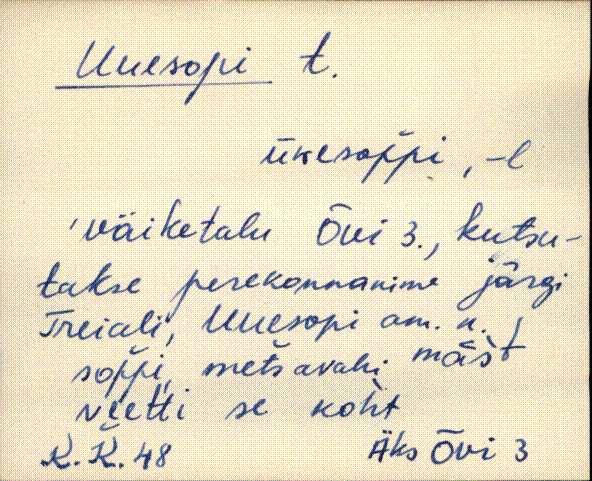 Uuesopi t.
ükesoppi, -l
'väiketalu Õvi 3., kutsu-
takse perekonnanime järgi
Treiali, Uuesopi am. n.
soppi, metsavahi mäšt
veetti se koht
K.K. 48 Äks Õvi 3